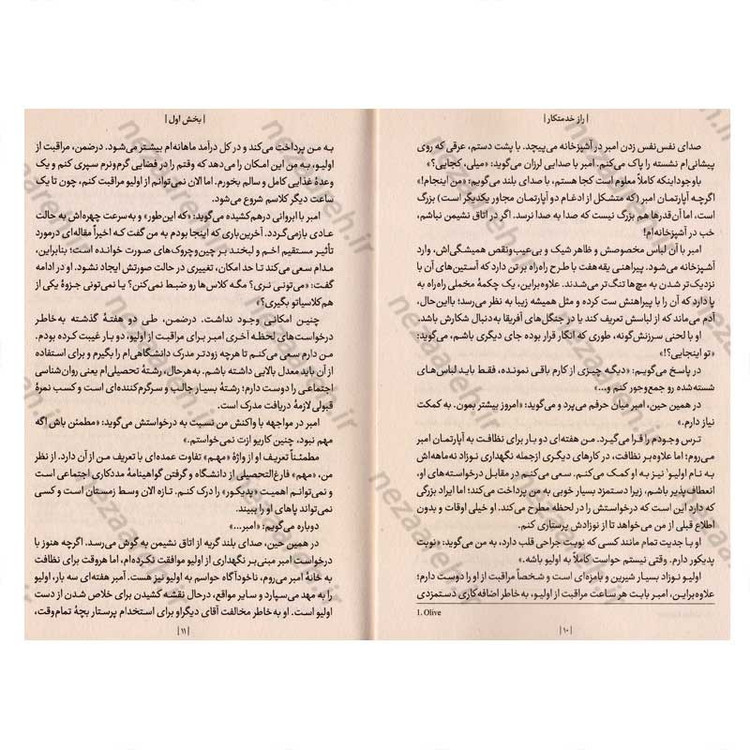 | راز خدمتکار |
صدای نفس‌نفس زدن امبر در آشپزخانه می‌پیچد. با پشت دستم، عرقی که روی
پیشانی‌ام نشسته را پاک می‌کنم. امبر با صدایی لرزان می‌گوید: «میلی، کجایی؟»
باوجوداینکه کاملاً معلوم است کجا هستم، با صدای بلند می‌گویم: «من اینجام!»
اگرچه آپارتمان امبر (که متشکل از ادغام دو آپارتمان مجاور یکدیگر است) بزرگ
است، اما آن‌قدرها هم بزرگ نیست که صدا به صدا نرسد. اگر در اتاق نشیمن نباشم،
خب در آشپزخانه‌ام!
امبر با آن لباس مخصوصش و ظاهر شیک و بی‌عیب‌ونقص همیشگی‌اش، وارد
آشپزخانه می‌شود. پیراهنی یقه‌هفت با طرح راه‌راه بر تن دارد که آستین‌های آن با
نزدیک‌تر شدن به مچ‌ها تنگ‌تر می‌شدند. علاوه‌براین، یک چکمهٔ مخملی راه‌راه به
پا دارد که آن را با پیراهنش ست کرده و مثل همیشه زیبا به نظر می‌رسد؛ بااین‌حال،
آدم می‌ماند که از لباسش تعریف کند یا در جنگل‌های آفریقا به‌دنبال شکارش باشد.
او با لحنی سرزنش‌گونه، طوری که انگار قرار بوده جای دیگری باشم، می‌گوید:
«تو اینجایی؟!»
در پاسخ می‌گویم: «دیگه چیزی از کارم باقی نمونده، فقط باید لباس‌های
شسته‌شده رو جمع‌وجور کنم و...»
در همین حین، امبر میان حرفم می‌پرد و می‌گوید: «امروز بیشتر بمون. به کمکت
نیاز دارم.»
ترس وجودم را فرا می‌گیرد. من هفته‌ای دو بار برای نظافت به آپارتمان امبر
می‌روم؛ اما علاوه‌بر نظافت، در کارهای دیگری ازجمله نگهداری نوزاد نه‌ماهه‌اش
به نام اولیو¹ نیز به او کمک می‌کنم. سعی می‌کنم در مقابل درخواست‌های او،
انعطاف‌پذیر باشم، زیرا دستمزد بسیار خوبی به من پرداخت می‌کند؛ اما ایراد بزرگی
که دارد این است که درخواستش را در لحظه مطرح می‌کند. او خیلی اوقات و بدون
اطلاع قبلی از من می‌خواهد تا از نوزادش پرستاری کنم.
او با جدیت تمام مانند کسی که نوبت جراحی قلب دارد، به من می‌گوید: «نوبت
پدیکور دارم. وقتی نیستم حواست کاملاً به اولیو باشه.»
اولیو نوزاد بسیار شیرین و بامزه‌ای است و شخصاً مراقبت از او را دوست دارم؛
علاوه‌براین، امبر بابت هر ساعت مراقبت از اولیو، به‌خاطر اضافه‌کاری دستمزدی
1. Olive
| ۱۰ |
| بخش اول |
به من پرداخت می‌کند و در کل درآمد ماهانه‌ام بیشتر می‌شود. درضمن، مراقبت از
اولیو، به من این امکان را می‌دهد که وقتم را در فضایی گرم‌ونرم سپری کنم و یک
وعدهٔ غذایی کامل و سالم بخورم. اما الان نمی‌توانم از اولیو مراقبت کنم، چون تا یک
ساعت دیگر کلاسم شروع می‌شود.
امبر با ابروانی درهم‌کشیده می‌گوید: «که این‌طور» و به‌سرعت چهره‌اش به حالت
عادی بازمی‌گردد. آخرین‌باری که اینجا بودم به من گفت که اخیراً مقاله‌ای درمورد
تأثیر مستقیم اخم و لبخند بر چین‌وچروک‌های صورت خوانده است؛ بنابراین،
مدام سعی می‌کند تا حد امکان، تغییری در حالت صورتش ایجاد نشود. او در ادامه
گفت: «می‌تونی نری؟ مگه کلاس‌ها رو ضبط نمی‌کنن؟ یا نمی‌تونی جزوهٔ یکی از
هم‌کلاسیاتو بگیری؟»
چنین امکانی وجود نداشت. درضمن، طی دو هفتهٔ گذشته به‌خاطر
درخواست‌های لحظه آخری امبر برای مراقبت از اولیو، دو بار غیبت کرده بودم.
من دارم سعی می‌کنم تا هرچه زودتر مدرک دانشگاهی‌ام را بگیرم و برای استفاده
از آن باید معدل بالایی داشته باشم. به‌هرحال، رشتهٔ تحصیلی‌ام یعنی روان‌شناسی
اجتماعی را دوست دارم؛ رشتهٔ بسیار جالب و سرگرم‌کننده‌ای است و کسب نمرهٔ
قبولی لازمهٔ دریافت مدرک است.
امبر در مواجهه با واکنش من نسبت به درخواستش می‌گوید: «مطمئن باش اگه
مهم نبود، چنین کاریو ازت نمی‌خواستم.»
مطمئناً تعریف او از واژهٔ «مهم» تفاوت عمده‌ای با تعریف من از آن دارد. از نظر
من، «مهم» فارغ‌التحصیلی از دانشگاه و گرفتن گواهینامهٔ مددکاری اجتماعی است
و نمی‌توانم اهمیت «پدیکور» را درک کنم. تازه الان وسط زمستان است و کسی
نمی‌تواند پاهای او را ببیند.
دوباره می‌گویم: «امبر...»
در همین حین، صدای بلند گریه از اتاق نشیمن به گوش می‌رسد. اگرچه هنوز با
درخواست امبر مبنی‌بر نگهداری از اولیو موافقت نکرده‌ام، اما هروقت برای نظافت
به خانهٔ امبر می‌روم، ناخودآگاه حواسم به اولیو نیز هست. امبر هفته‌ای سه بار، اولیو
را به مهد می‌سپارد و سایر مواقع، درحال نقشه کشیدن برای خلاص شدن از دست
اولیو است. او به خاطر مخالفت آقای دیگراو برای استخدام پرستار بچهٔ تمام‌وقت،
| ۱۱ |
nezaareh.ir